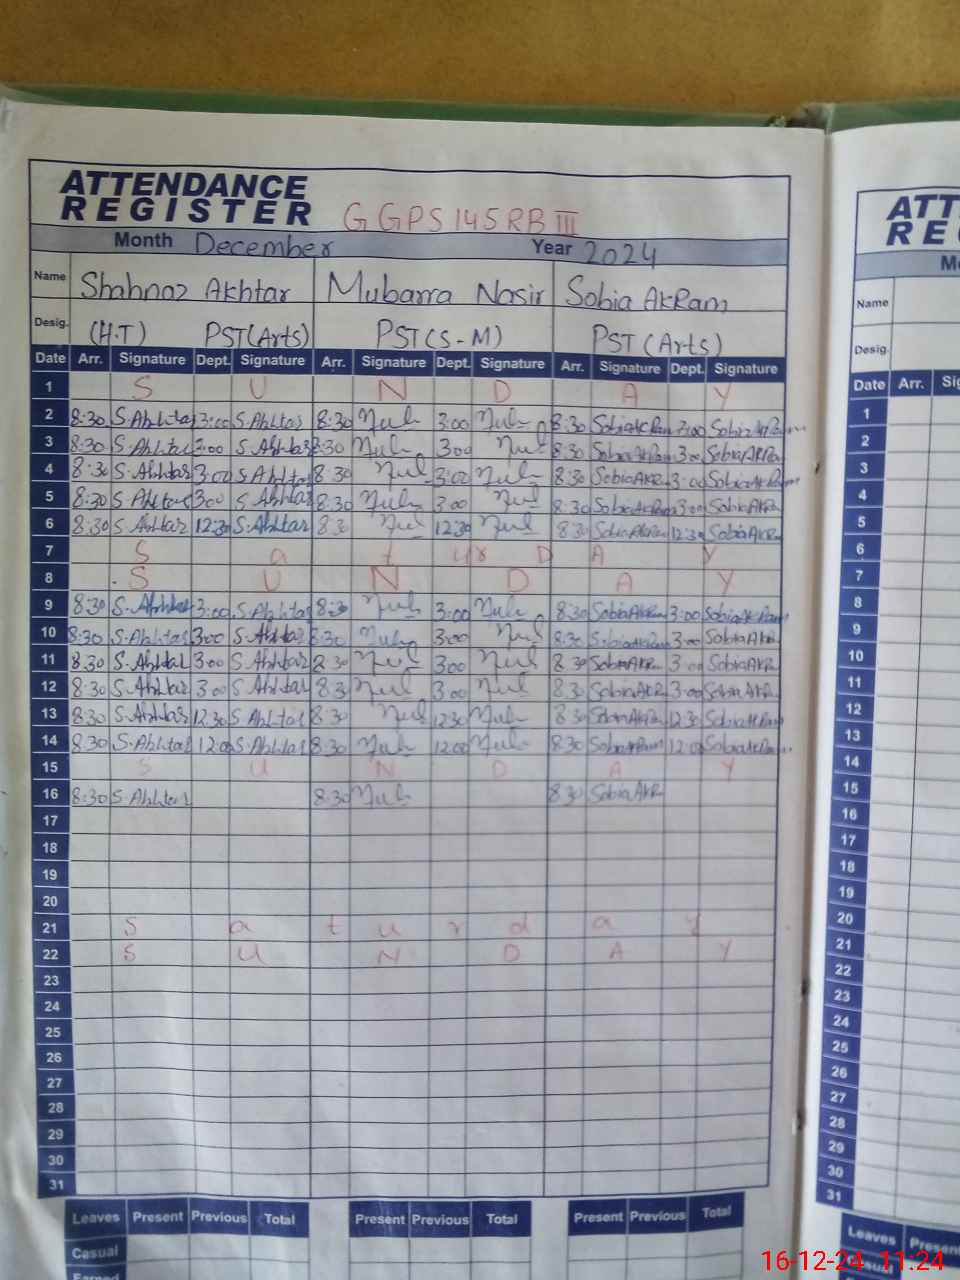 ATTENDANCE
REGISTER GGPS 145 RB III
Month December Year 2024
Name Shahnaz Akhtar Mubarra Nasir Sobia AkRam
Desig. (H.T) PST(Arts) PST(S-M) PST(Arts)
Date Arr. Signature Dept. Signature Arr. Signature Dept. Signature Arr. Signature Dept. Signature
1 S U N D A Y
2 8:30 S.Akhtar 3:00 S.Akhtar 8:30 3:00 8:30 SobiaAkRam 3:00 SobiaAkRam
3 8:30 S.Akhtar 3:00 S.Akhtar 8:30 300 8:30 SobiaAkRam 3:00 SobiaAkRam
4 8:30 S.Akhtar 3:00 S.Akhtar 8:30 3:00 8:30 SobiaAkR 3:00 SobiaAkRam
5 8:30 S.Akhtar 300 S.Akhtar 8:30 300 8:30 SobiaAkRam 3:00 SobiaAkRa
6 8:30 S.Akhtar 12:30 S.Akhtar 8:30 12:30 8:30 SobiaAkRam 12:30 SobiaAkRam
7 S a t ur D A Y
8 S U N D A Y
9 8:30 S.Akhtar 3:00 S.Akhtar 8:30 3:00 8:30 SobiaAkRam 3:00 SobiaAkRam
10 8:30 S.Akhtar 300 S.Akhtar 8:30 3:00 8:30 SobiaAkRam 3:00 SobiaAkR
11 8:30 S.Akhtar 3:00 S.Akhtar 8:30 300 8:30 SobiaAkRa 3:00 SobiaAkRa
12 8:30 S.Akhtar 3:00 S.Akhtar 8:30 3:00 8:30 SobiaAkR 3:00 Sobia AkRa
13 8:30 S.Akhtar 12:30 S.Akhtar 8:30 12:30 8:30 SobiaAkRa 12:30 SobiaAkRam
14 8:30 S.Akhtar 12:00 S.Akhtar 8:30 12:00 8:30 SobiaAkRam 12:00 SobiaAkRam
15 S U N D A Y
16 8:30 S.Akhtar 8:30 8:30 SobiaAkR
17
18
19
20
21 S a t u r d a y
22 S U N D A Y
23
24
25
26
27
28
29
30
31
Leaves Present Previous Total Present Previous Total Present Previous Total
Casual
Earned
ATT
RE
Name
Desig.
Date Arr.
1
2
3
4
5
6
7
8
9
10
11
12
13
14
15
16
17
18
19
20
21
22
23
24
25
26
27
28
29
30
31
Leaves Present
Casual
16-12-24 11:24